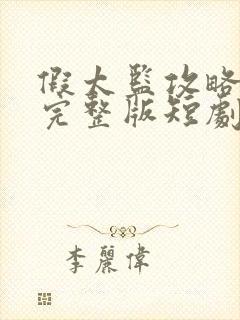 假太監攻略
完整版短劇
李麗偉